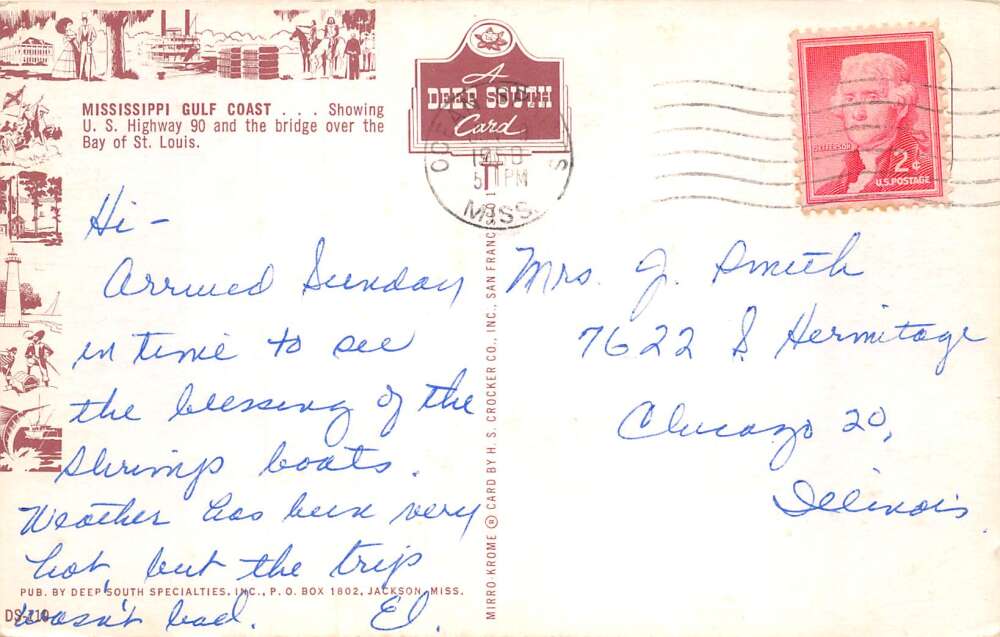 MISSISSIPPI GULF COAST . . . Showing
U. S. Highway 90 and the bridge over the
Bay of St. Louis.
A
DEEP SOUTH
Card
5 PM
MISS.
JEFFERSON
2¢
U.S. POSTAGE
Hi -
Arrived Sunday
in time to see
the blessing of the
shrimp boats.
Weather has been very
hot, but the trip
wasn't bad. El.
Mrs. J. Smith
7622 S Hermitage
Chicago 20,
Illinois
MIRRO-KROME ® CARD BY H. S. CROCKER CO., INC., SAN FRANC
PUB. BY DEEP SOUTH SPECIALTIES, INC., P. O. BOX 1802, JACKSON, MISS.